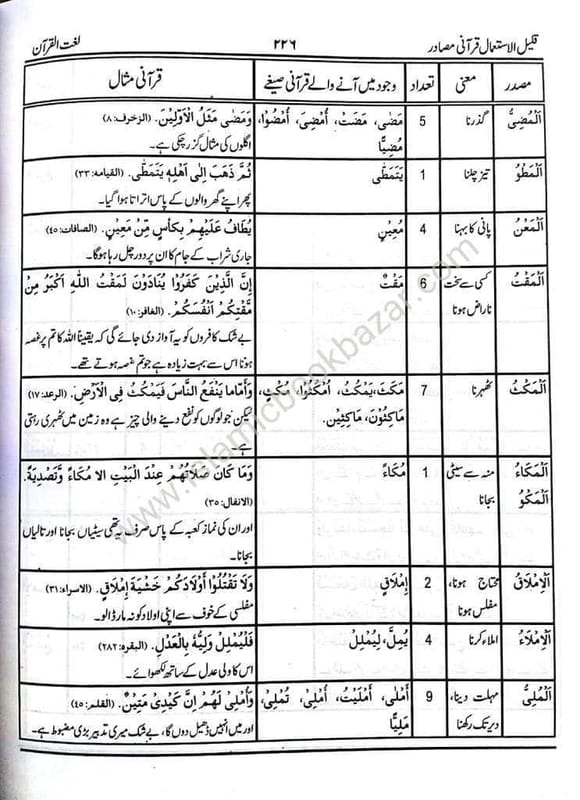 قلیل الاستعمال قرآنی مصادر ۲۲۶ لغت القرآن
مصدر معنی تعداد وجود میں آنے والے قرآنی صیغے قرآنی مثال
اَلْمُضِیُّ گذرنا 5 مَضٰی، مَضَتْ، اُمْضِیَ، اُمْضُوْا، وَمَضٰی مَثَلُ الْاَوَّلِیْنَ. (الزخرف: ۸)
مُضِیًّا اگلوں کی مثال گزر چکی ہے۔
اَلْمَطْوُ تیز چلنا 1 یَتَمَطّٰی ثُمَّ ذَهَبَ اِلٰی اَهْلِهٖ یَتَمَطّٰی. (القیامه: ۳۳)
پھر اپنے گھر والوں کے پاس اتراتا ہوا گیا۔
اَلْمَعْنُ پانی کا بہنا 4 مَعِیْنٍ یُطَافُ عَلَیْهِمْ بِکَأْسٍ مِّنْ مَعِیْنٍ. (الصافات: ۴۵)
جاری شراب کے جام کا ان پر دور چل رہا ہوگا۔
اَلْمَقْتُ کسی سے سخت 6 مَقْتٌ اِنَّ الَّذِیْنَ کَفَرُوْا یُنَادَوْنَ لَمَقْتُ اللّٰهِ اَکْبَرُ مِنْ
ناراض ہونا مَّقْتِکُمْ اَنْفُسَکُمْ. (الغافر: ۱۰)
بے شک کافروں کو یہ آواز دی جائے گی کہ یقیناً اللہ کا تم پر غصہ
ہونا اس سے بہت زیادہ ہے جو تم غصہ ہوتے تھے۔
اَلْمَکْثُ ٹھہرنا 7 مَکَثَ، یَمْکُثُ، اُمْکُثُوْا، مُکْثٍ، وَاَمَّا مَا یَنْفَعُ النَّاسَ فَیَمْکُثُ فِی الْاَرْضِ. (الرعد: ۱۷)
مَاکِثُوْنَ، مَاکِثِیْنَ. لیکن جو لوگوں کو نفع دینے والی چیز ہے وہ زمین میں ٹھہری رہتی
ہے۔
اَلْمُکَاءُ منہ سے سیٹی 1 مُکَاءً وَمَا کَانَ صَلَاتُهُمْ عِنْدَ الْبَیْتِ اِلا مُکَاءً وَّتَصْدِیَةً.
اَلْمَکْوُ بجانا (الانفال: ۳۵)
اور ان کی نماز کعبہ کے پاس صرف یہ تھی سیٹیاں بجانا اور تالیاں
بجانا۔
اَلْاِمْلَاقُ محتاج ہونا، 2 اِمْلَاقٍ وَلَا تَقْتُلُوْا اَوْلَادَکُمْ خَشْیَةَ اِمْلَاقٍ. (الاسراء: ۳۱)
مفلس ہونا مفلسی کے خوف سے اپنی اولاد کو نہ مار ڈالو۔
اَلْاِمْلَاءُ املاء کرنا 4 یُمِلَّ، لِیُمْلِلْ فَلْیُمْلِلْ وَلِیُّهٗ بِالْعَدْلِ. (البقره: ۲۸۲)
اس کا ولی عدل کے ساتھ لکھوائے۔
اَلْمُلِیُّ مہلت دینا، 9 اَمْلٰی، اَمْلَیْتُ، اُمْلِیْ، تُمْلٰی، وَاُمْلِیْ لَهُمْ اِنَّ کَیْدِیْ مَتِیْنٌ. (القلم: ۴۵)
دیر تک رکھنا مَلِیًّا اور میں انہیں ڈھیل دوں گا، بے شک میری تدبیر بڑی مضبوط ہے۔
www.islamicbookbazar.com